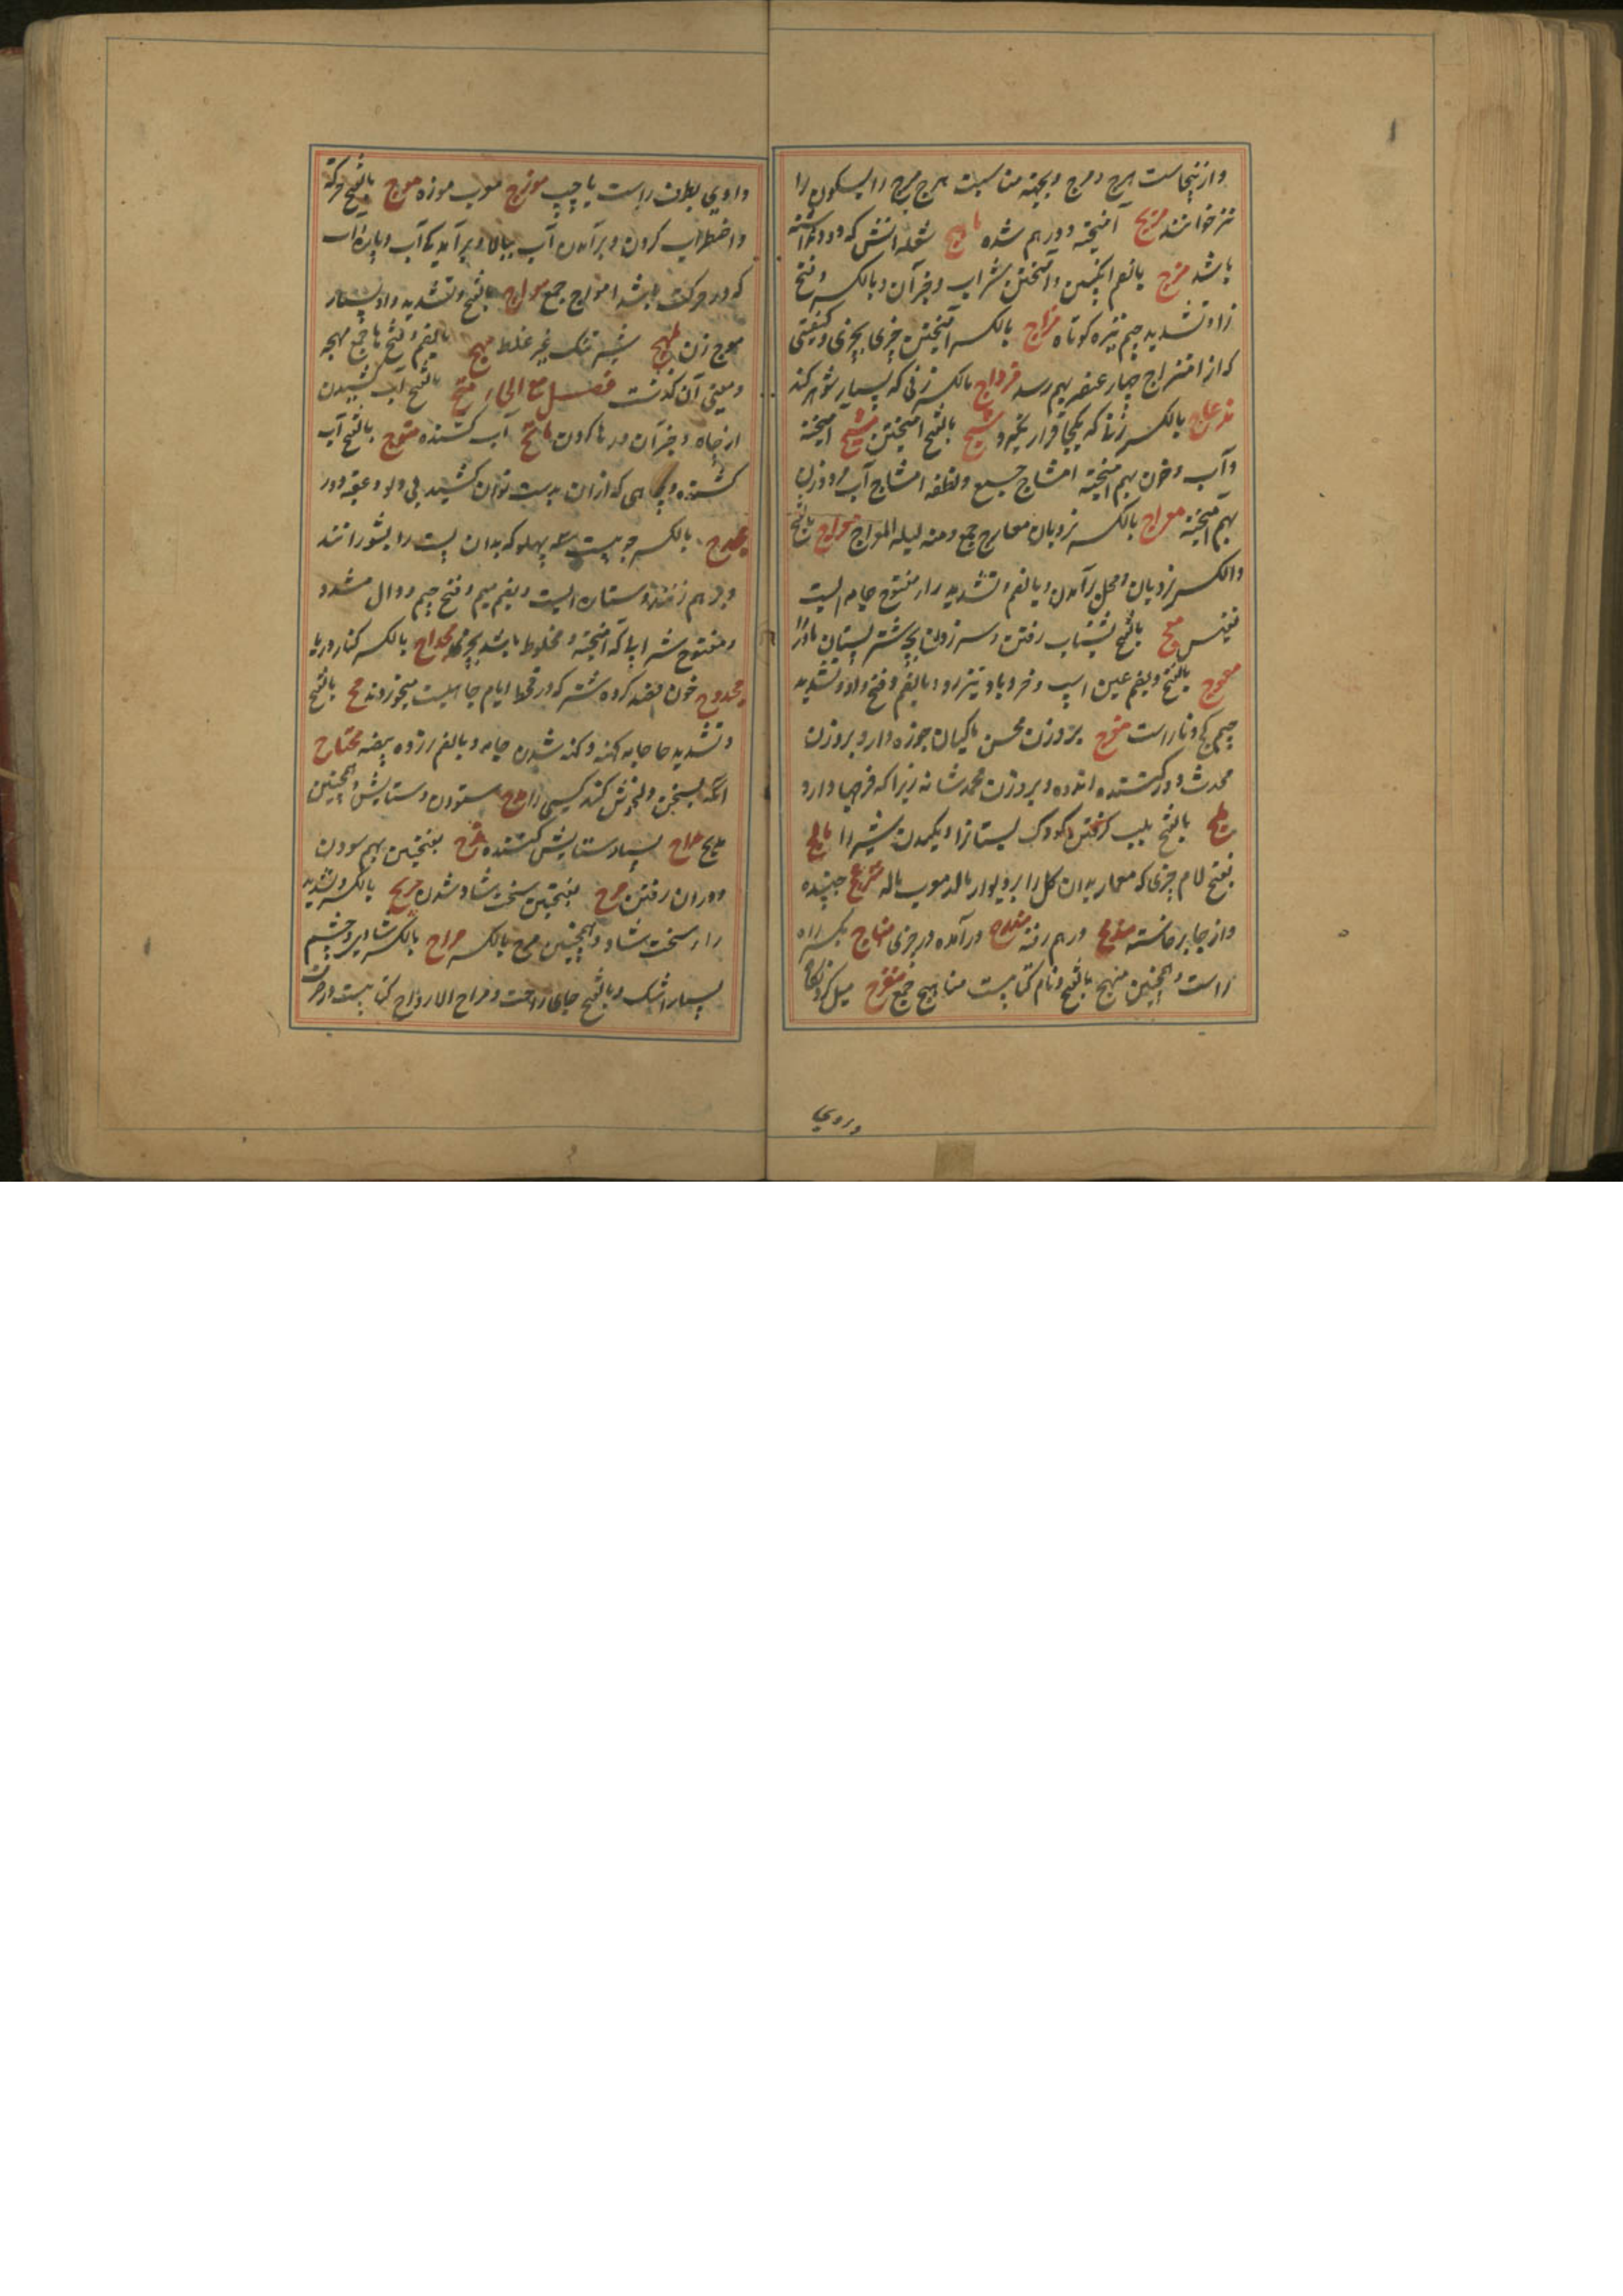 وازینجاست هرج و مرج وبجهته مناسبت هرج مرج را بسکون را
نیز خوانند مریج آمیخته ودرهم شده مارج شعله اتش که دود
باشد مزج بالفم انگبین وآمیختن شراب وجزآن وبالکسر وفتح
زا وتشدید جیم نیزه کوتاه مزاج بالکسر آمیختن چیزی بچیزی وکیفیتی
که از امتزاج چهار عنصر بهم رسد مزواج بالکسر زنی که بسیار شوهر کند
مزعاج بالکسر زنی که یکجا قرار نگیرد مشج بالفتح آمیختن مشیج آمیخته
وآب وخون بهم آمیخته امشاج جمع ونطفه امشاج آب مرد وزن
بهم آمیخته معراج بالکسر نردبان معارج جمع ومنه لیله المعراج معراج بالفتح
والکسر نردبان ومحل برآمدن وبالفم وتشدید راء مفتوح جامه ایست
نفیس معج بالفتح بشتاب رفتن وسر زدن بچه شتر پستان مادر را
معوج بالفتح وبضم عین اسپ وخر وباد تیزرو وبالفم وفتح واو وتشدید
جیم کج وناراست مفرج بروزن محسن ماکیان جوزه دار وبروزن
محدث دور کننده اندوه وبروزن محمد شانه زیراکه فرجها دارد
ملج بالفتح بلب گرفتن کودک پستانرا ومکیدن شیر را مالج
بفتح لام چیزی که معمار بدان گل را بر دیوار مالد معرب ماله منزعج جنبنده
واز جا برخاسته مندمج درهم رفته درآمده در چیزی منهاج بکسر راه
راست وهمچنین منهج بالفتح ونام کتابیست مناهج جمع منعرج میل کرد
وروی
وادوی بطرف راست یا چپ موزج معرب موزه موج بالفتح حرکة
واضطراب کردن وبرآمدن آب ببالا وبرآمدگی آب وپاره آب
که در حرکت باشد امواج جمع مواج بالفتح وتشدید واو بسیار
موج زن شیر تنک غیر غلط مهج بالضم وفتح ها جمع مهجه
ومعنی آن گذشت فصل مع الحاء متح بالفتح آب کشیدن
از چاه وجزآن ورها کردن ماتح آب کشنده متوح بالفتح آب
کشنده وچاهی که ازان بدست توان کشید بی دلو وعقبه دور
مجدح بالکسر چوبیست سه پهلو که بدان پست را بشورانند
وبرهم زنند وستاره ایست وبضم میم وفتح جیم ودال مشدد
ومفتوح شرابیکه آمیخته ومخلوط باشد بچیزی مجداح بالکسر کنار دریا
مجدوح خون فصد کرده شتر که در قحط ایام جاهلیت میخوردند مح بالفتح
وتشدید حا جامه کهنه وکهنه شدن جامه وبالضم زرده بیضه محتاح
انکه بسخن ولغزش کند کسی را مدح ستودن وستایش وهمچنین
مدیح مداح بسیار ستایش کننده مذح بفتحتین بهم سودن
دوران رفتن مرح بفتحتین سخت شاد شدن مریح بالکسر وتشدید
راء سخت شاد وهمچنین مرح بالکسر مراح بالکسر شادی وچشم
بسیار اشک وبالفتح جای راحت ومراح الارواح کتابیست در صرف